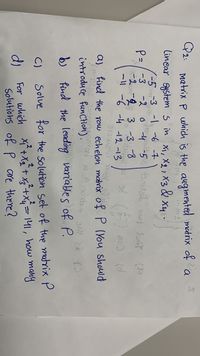 Q2: Matrix P which is the augmented matrix of a
linear system S in x1, x2, x3 & x4.
P =
-5 -3 -1 -2 7
-3 -2 0 -4 -5
-2 3 -3 -8
-11 -6 -4 -12 -13
a) find the row echelon matrix of P (You should
introduce function).
b) find the leading variables of P.
c) Solve for the solution set of the matrix P
d) For which x1² + x2² + x3² + x4² = 141, how many
solutions of P are there?